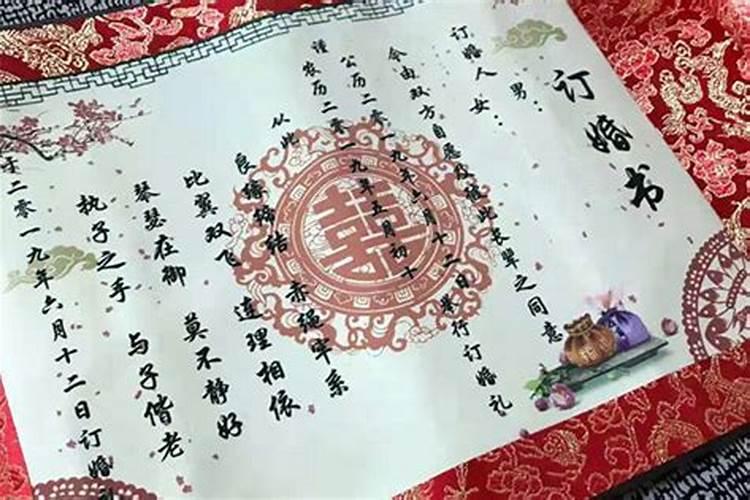 订婚书
男：
订婚人 女：
今由双方自愿及此长辈之同意
公历二零一九年六月十二日举行订婚礼
谨农历二零一九年五月初十
从此
良缘缔结 赤绳牢系
比翼双飞 连理相依
琴瑟在御 莫不静好
执子之手 与子偕老
于二零一九年六月十二日订婚